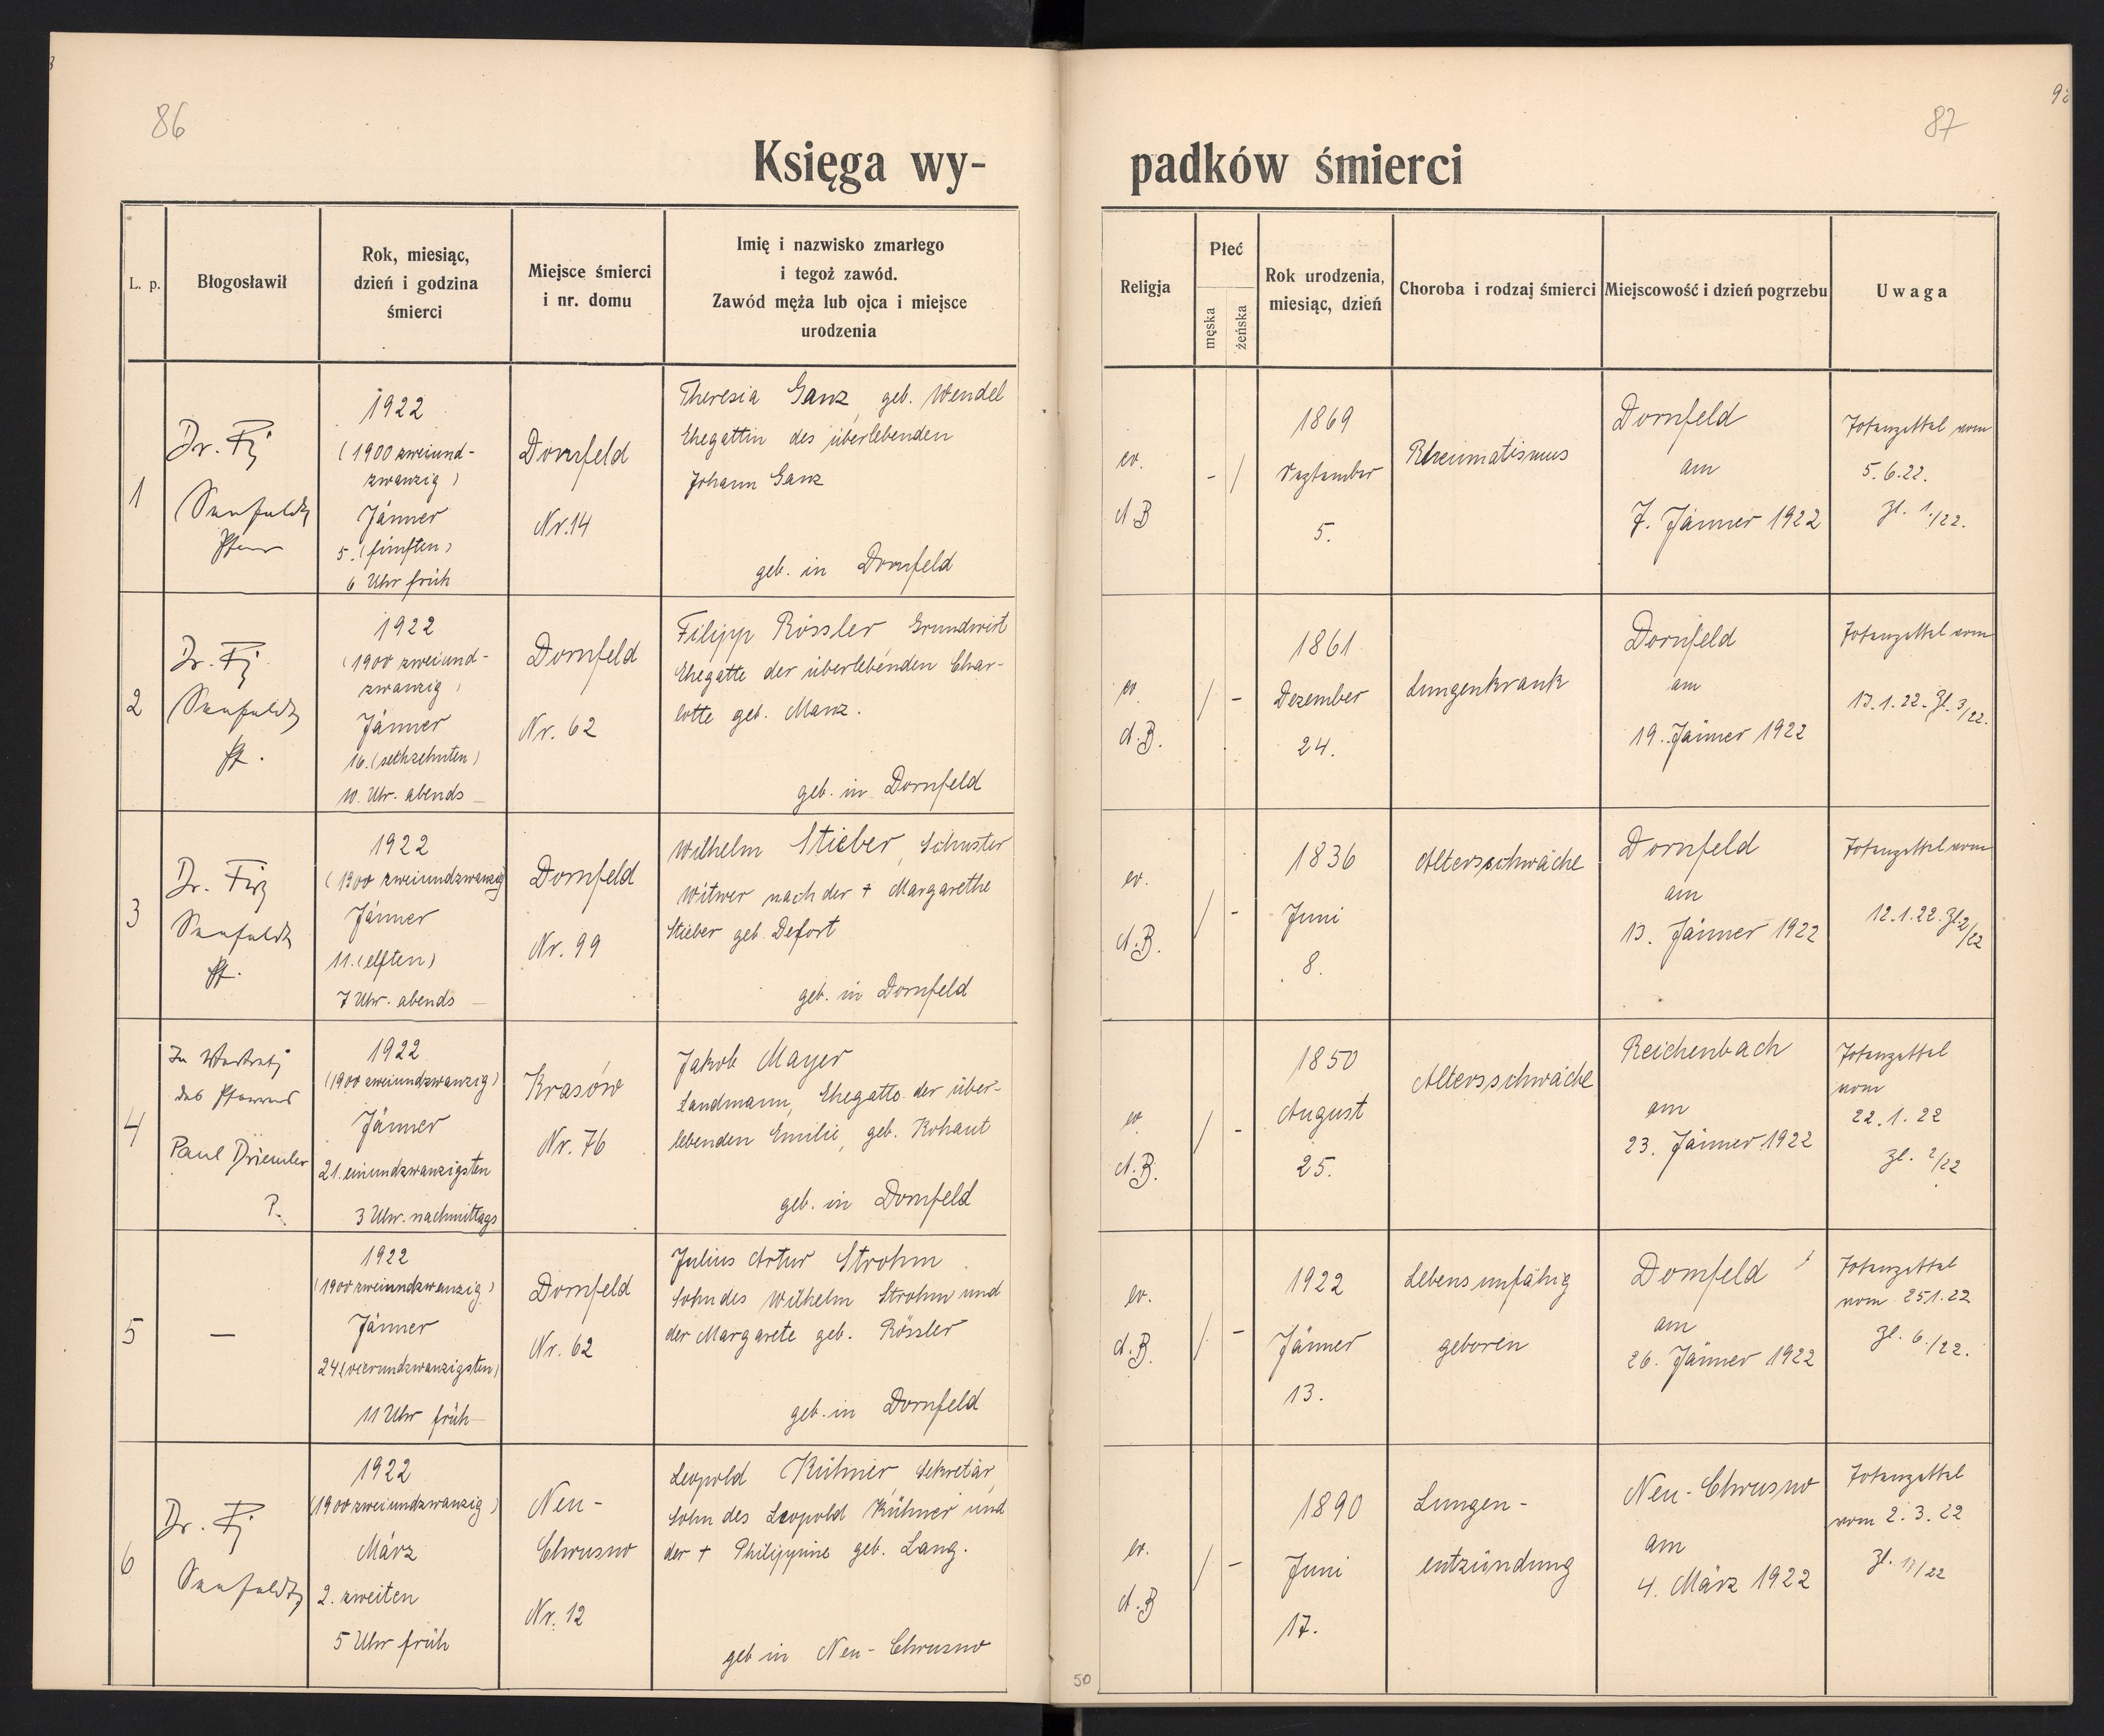 86
87
Księga wy-
padków śmierci
L. p.
Błogosławił
Rok, miesiąc,
dzień i godzina
śmierci
Miejsce śmierci
i nr. domu
Imię i nazwisko zmarłego
i tegoż zawód.
Zawód męża lub ojca i miejsce
urodzenia
Religja
Płeć
męska
żeńska
Rok urodzenia,
miesiąc, dzień
Choroba i rodzaj śmierci
Miejscowość i dzień pogrzebu
Uwaga
1
Dr.
Seefeldt
Pfarrer
1922
(1900 zweiund-
zwanzig)
Jänner
5. (fünften)
6 Uhr früh
Dornfeld
Nr. 14
Theresia Ganz, geb. Wendel
Ehegattin des überlebenden
Johann Ganz
geb. in Dornfeld
ev.
A.B
- /
1869
September
5.
Rheumatismus
Dornfeld
am
7. Jänner 1922
Totenzettel vom
5.6.22.
Zl. 1/22.
2
Dr.
Seefeldt
Pf.
1922
(1900 zweiund-
zwanzig)
Jänner
16. (sechzehnten)
10. Uhr. abends
Dornfeld
Nr. 62
Filipp Rössler Grundwirt
Ehegatte der überlebenden Char-
lotte geb. Manz.
geb. in Dornfeld
ev.
A.B.
/ -
1861
Dezember
24.
Lungenkrank
Dornfeld
am
19. Jänner 1922
Totenzettel vom
17.1.22. Zl. 3/22.
3
Dr.
Seefeldt
Pf.
1922
(1900 zweiundzwanzig)
Jänner
11. (elften)
7 Uhr. abends
Dornfeld
Nr. 99
Wilhelm Stieber, Schuster
Witwer nach der + Margarethe
Stieber geb. Defort
geb. in Dornfeld
ev.
A.B.
/ -
1836
Juni
8.
Altersschwäche
Dornfeld
am
13. Jänner 1922
Totenzettel vom
12.1.22. Zl. 2/22
4
In Vertretg
des Pfarrers
Paul
P.
1922
(1900 zweiundzwanzig)
Jänner
21. einundzwanzigsten
3 Uhr. nachmittags
Krasów
Nr. 76
Jakob Mayer
Landmann, Ehegatte der über-
lebenden Emilie, geb. Kohaut
geb. in Dornfeld
ev.
A.B.
/ -
1850
August
25.
Altersschwäche
Reichenbach
am
23. Jänner 1922
Totenzettel
vom
22.1.22
Zl. 2/22
5
—
1922
(1900 zweiundzwanzig)
Jänner
24 (vierundzwanzigsten)
11 Uhr früh
Dornfeld
Nr. 62
Julius Artur Strohm
Sohn des Wilhelm Strohm und
der Margarete geb. Rössler
geb. in Dornfeld
ev.
A.B.
/ -
1922
Jänner
13.
Lebensunfähig
geboren
Dornfeld
am
26. Jänner 1922
Totenzettel
vom 25 1.22
Zl. 6./22.
6
Dr.
Seefeldt
1922
(1900 zweiundzwanzig)
März
2. zweiten
5 Uhr früh
Neu-
Chrusno
Nr. 12
Leopold Kühner, Sekretär,
Sohn des Leopold Kühner und
der + Philippine geb. Lang.
geb in Neu-Chrusno
ev.
A.B
/ -
1890
Juni
17.
Lungen-
entzündung
Neu-Chrusno
am
4. März 1922
Totenzettel
vom 2.3.22
Zl. 11/22
50